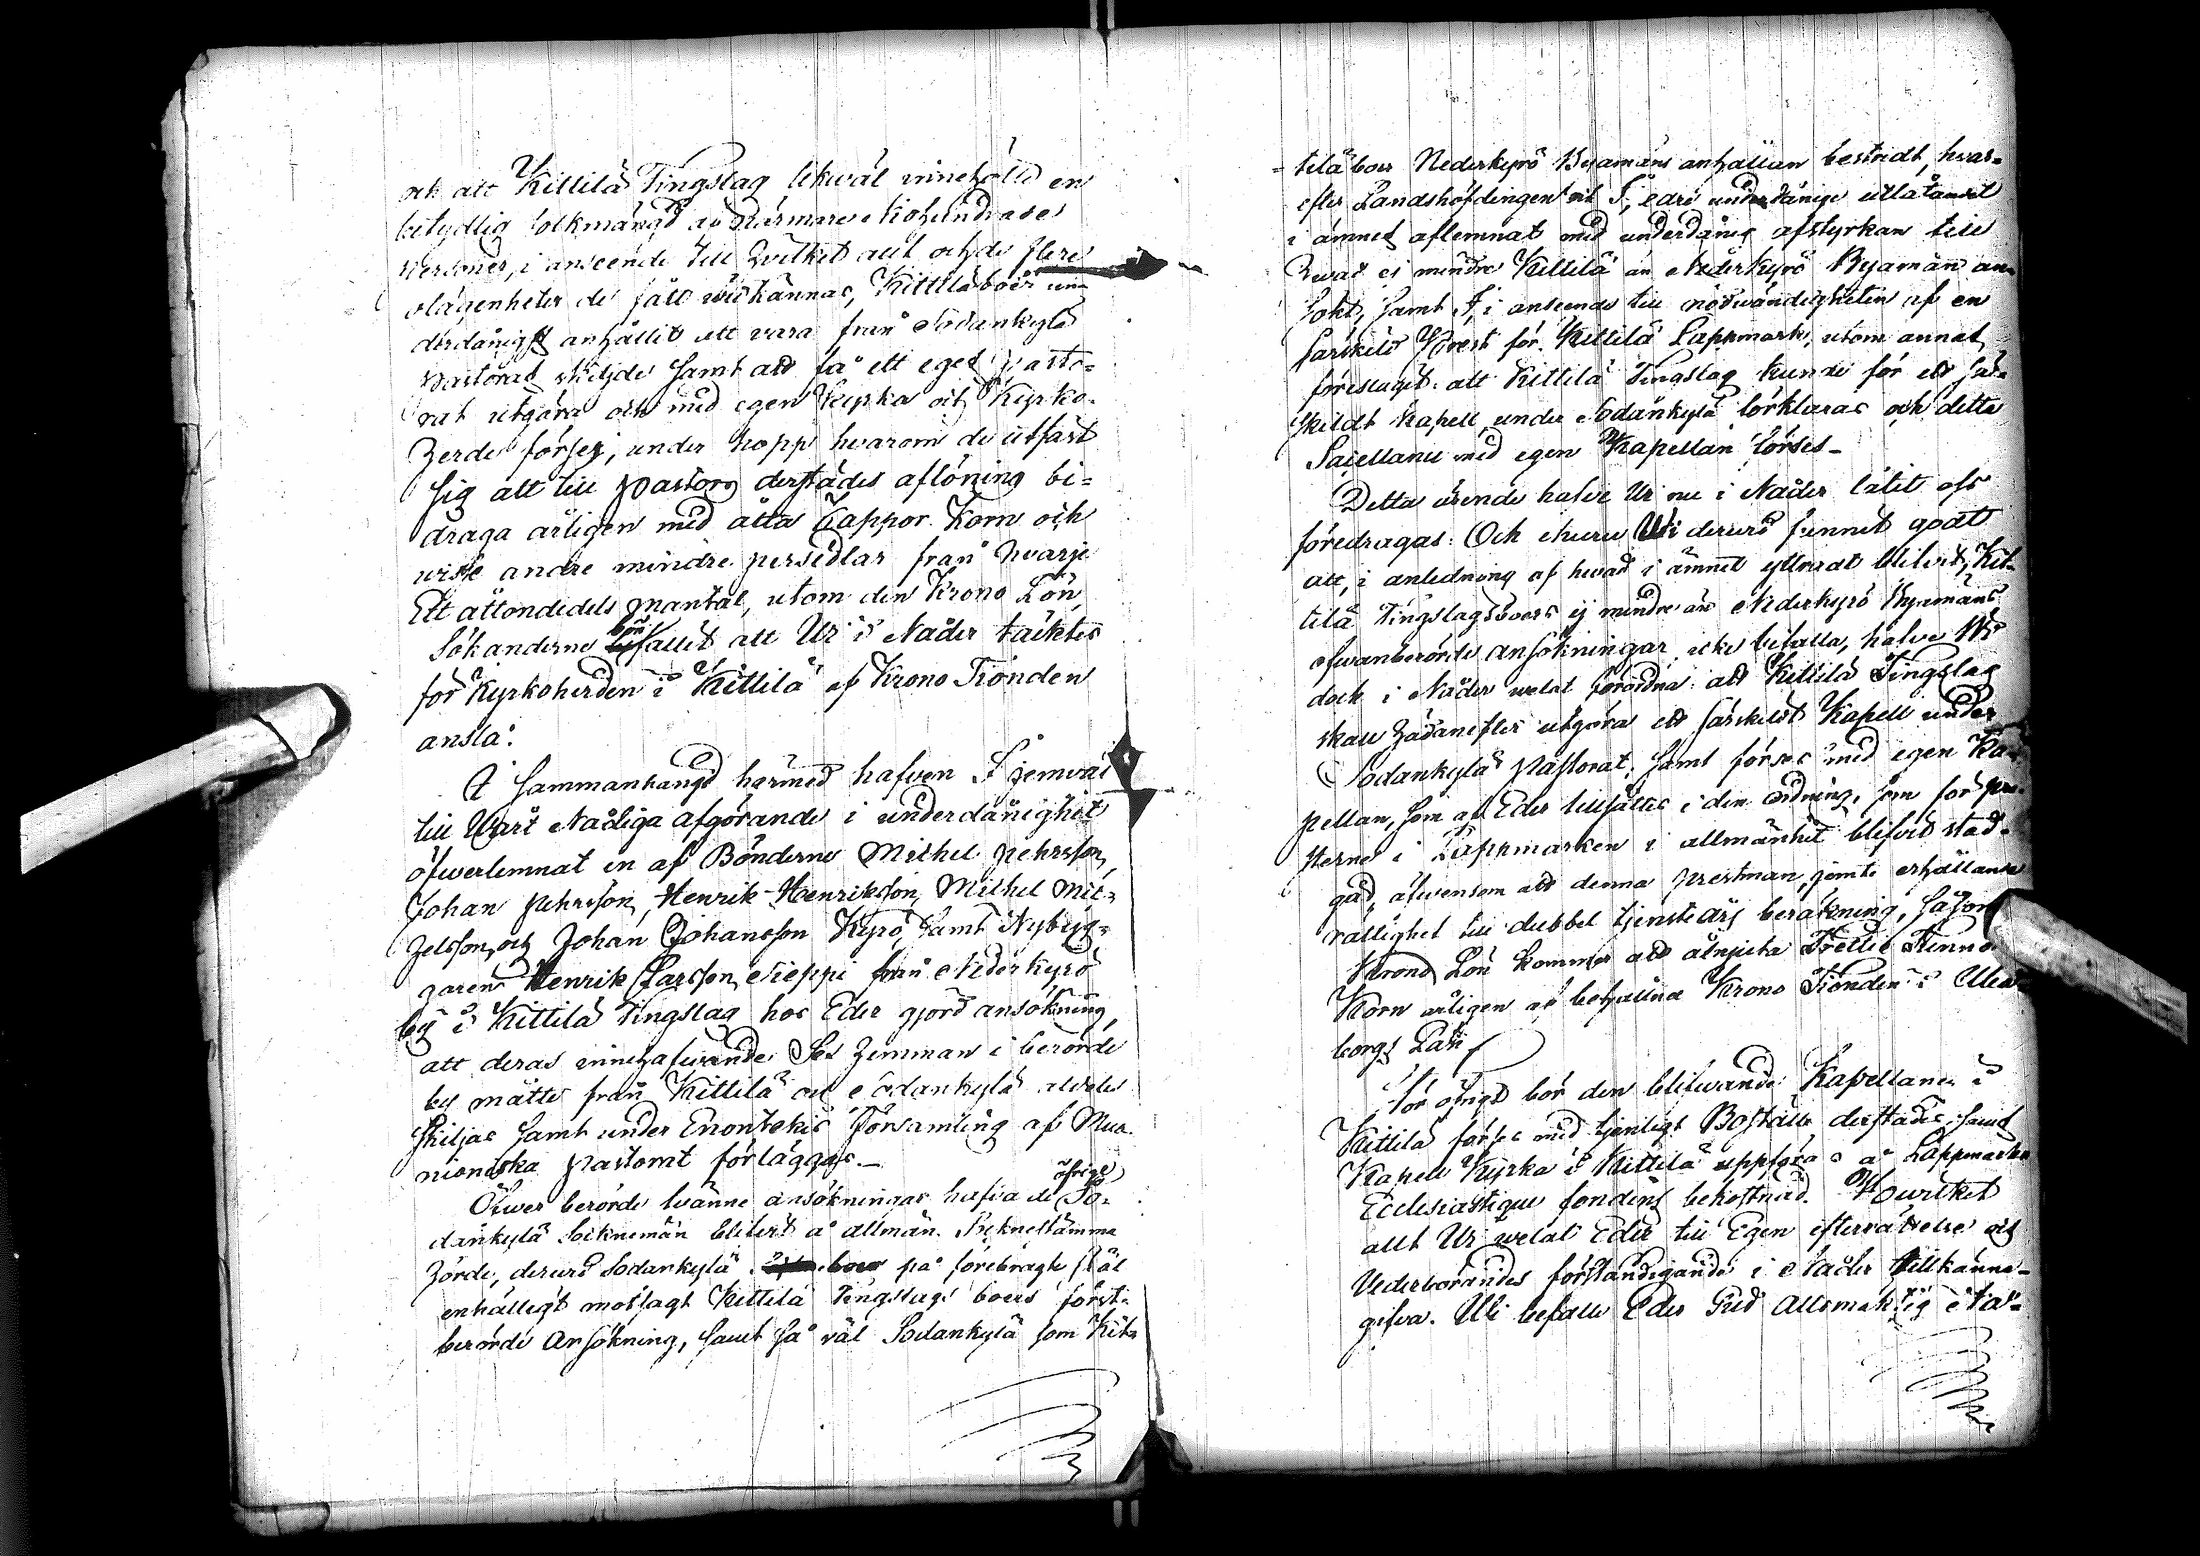 och att Kittilä Tingslag likwäl innehölle en
betydlig folkmängd af Närmare Niohundrade
Personer, i anseende till hwilket allt och de flere
olägenheter de fått widkännas, Kittilä boer un-
derdånigst anhållit att vara från Sodankylä
Pastorat skiljde samt att få ett eget Pasto-
rat utgöra och med egen Kyrka och Kyrko-
herde förses, under hopp hvarom de utfäst
sig att till Pastors derstädes aflöning bi-
draga årligen med åtta Cappor Korn och
wisse andre mindre persedlar från hvarje
Ett åttondedels Mantal, utom den Krono Lön,
Sökanderne bönfallit att Wi i Nåder täcktes
för Kyrkoherden i Kittilä af Krono Tionden
anslå.
I Sammanhang härmed hafven I jemwäl
till Wårt Nådiga afgörande i underdånighet
öfwerlemnat en af Bönderne Michel Pehrsson,
Johan Pehrsson, Henrik Henriksson, Michel Mic-
helsson, och Johan Johansson Kyrö, samt Nybyg-
garen Henrik Larsson Nieppi från Nederkyrö
by i Kittilä Tingslag hos Eder gjord ansökning,
att deras innehafwande Sex hemman i berörde
by måtte från Kittilä och Sodankylä aldeles
skiljas samt under Enontekis Församling af Muo-
nioniska Pastorat förläggas.
Öfwer berörde twänne ansökningar hafva de öfrige So-
dankylä Soknemän blifvit å allmän Soknestämma
hörde, derwid Sodankylä boer på förebragte skäl
enhälligt motsagt Kittilä Tingslags boers först-
berörde Ansökning, samt så väl Sodankylä som Kit-
tilä boer Nederkyrö Byamäns anhållan bestridt, hvar-
efter Landshöfdingen och I, edre underdånige utlåtandet
i ämnet aflemnat med underdånig afstyrkan till
hwad ej mindre Kittilä än Nederkyrö Byamän an-
sökt, samt I, i anseende till nödwändigheten af en
särskild Prest för Kittilä Lappmark, utom annat
föreslagit att Kittilä Tingslag kunde för ett sär-
skildt Kapell under Sodankylä förklaras och detta
med egen Kapellan förses.
Detta ärende hafve Wi nu i Nåder låtit oss
föredragas: Och ehuru Wi derwid funnit godt
att, i anledning af hwad i ämnet yttrat blifvit, Kit-
tilä Tingslagsboers ej mindre än Nederkyrö Byamäns
ofwanberörde ansökningar icke bifalla, hafve Wi
dock i Nåder welat förordna att Kittilä Tingslag
skall hädanefter utgöra ett särskildt Kapell under
Sodankylä Pastorat, samt förses med egen Ka-
pellan, som af Eder tillsättes i den ordning, som för pre-
sterne i Lappmarken i allmänhet blifvit stad-
gad, äfwensom att denna prestman, jemte erhållande
rättighet till dubbel tjensteårs beräkning, såsom
Krono Lön kommer att åtnjuta Trettio Tunnor
Korn årligen af behållne Krono Tionden i Ulea-
borgs Län.
För öfrigt bör den blifwande Kapellanen i
Kittilä förses med tjenligt Boställe derstädes, samt
Kapell Kyrka i Kittilä uppföras å Lappmarks
Ecclesiastique fondens bekostnad. Hwilket
allt Wi welat Eder till Egen efterrättelse och
Vederbörandes förständigande i Nåder tillkänna-
gifva. Wi befalle Eder Gud Allsmäktig e Nå-